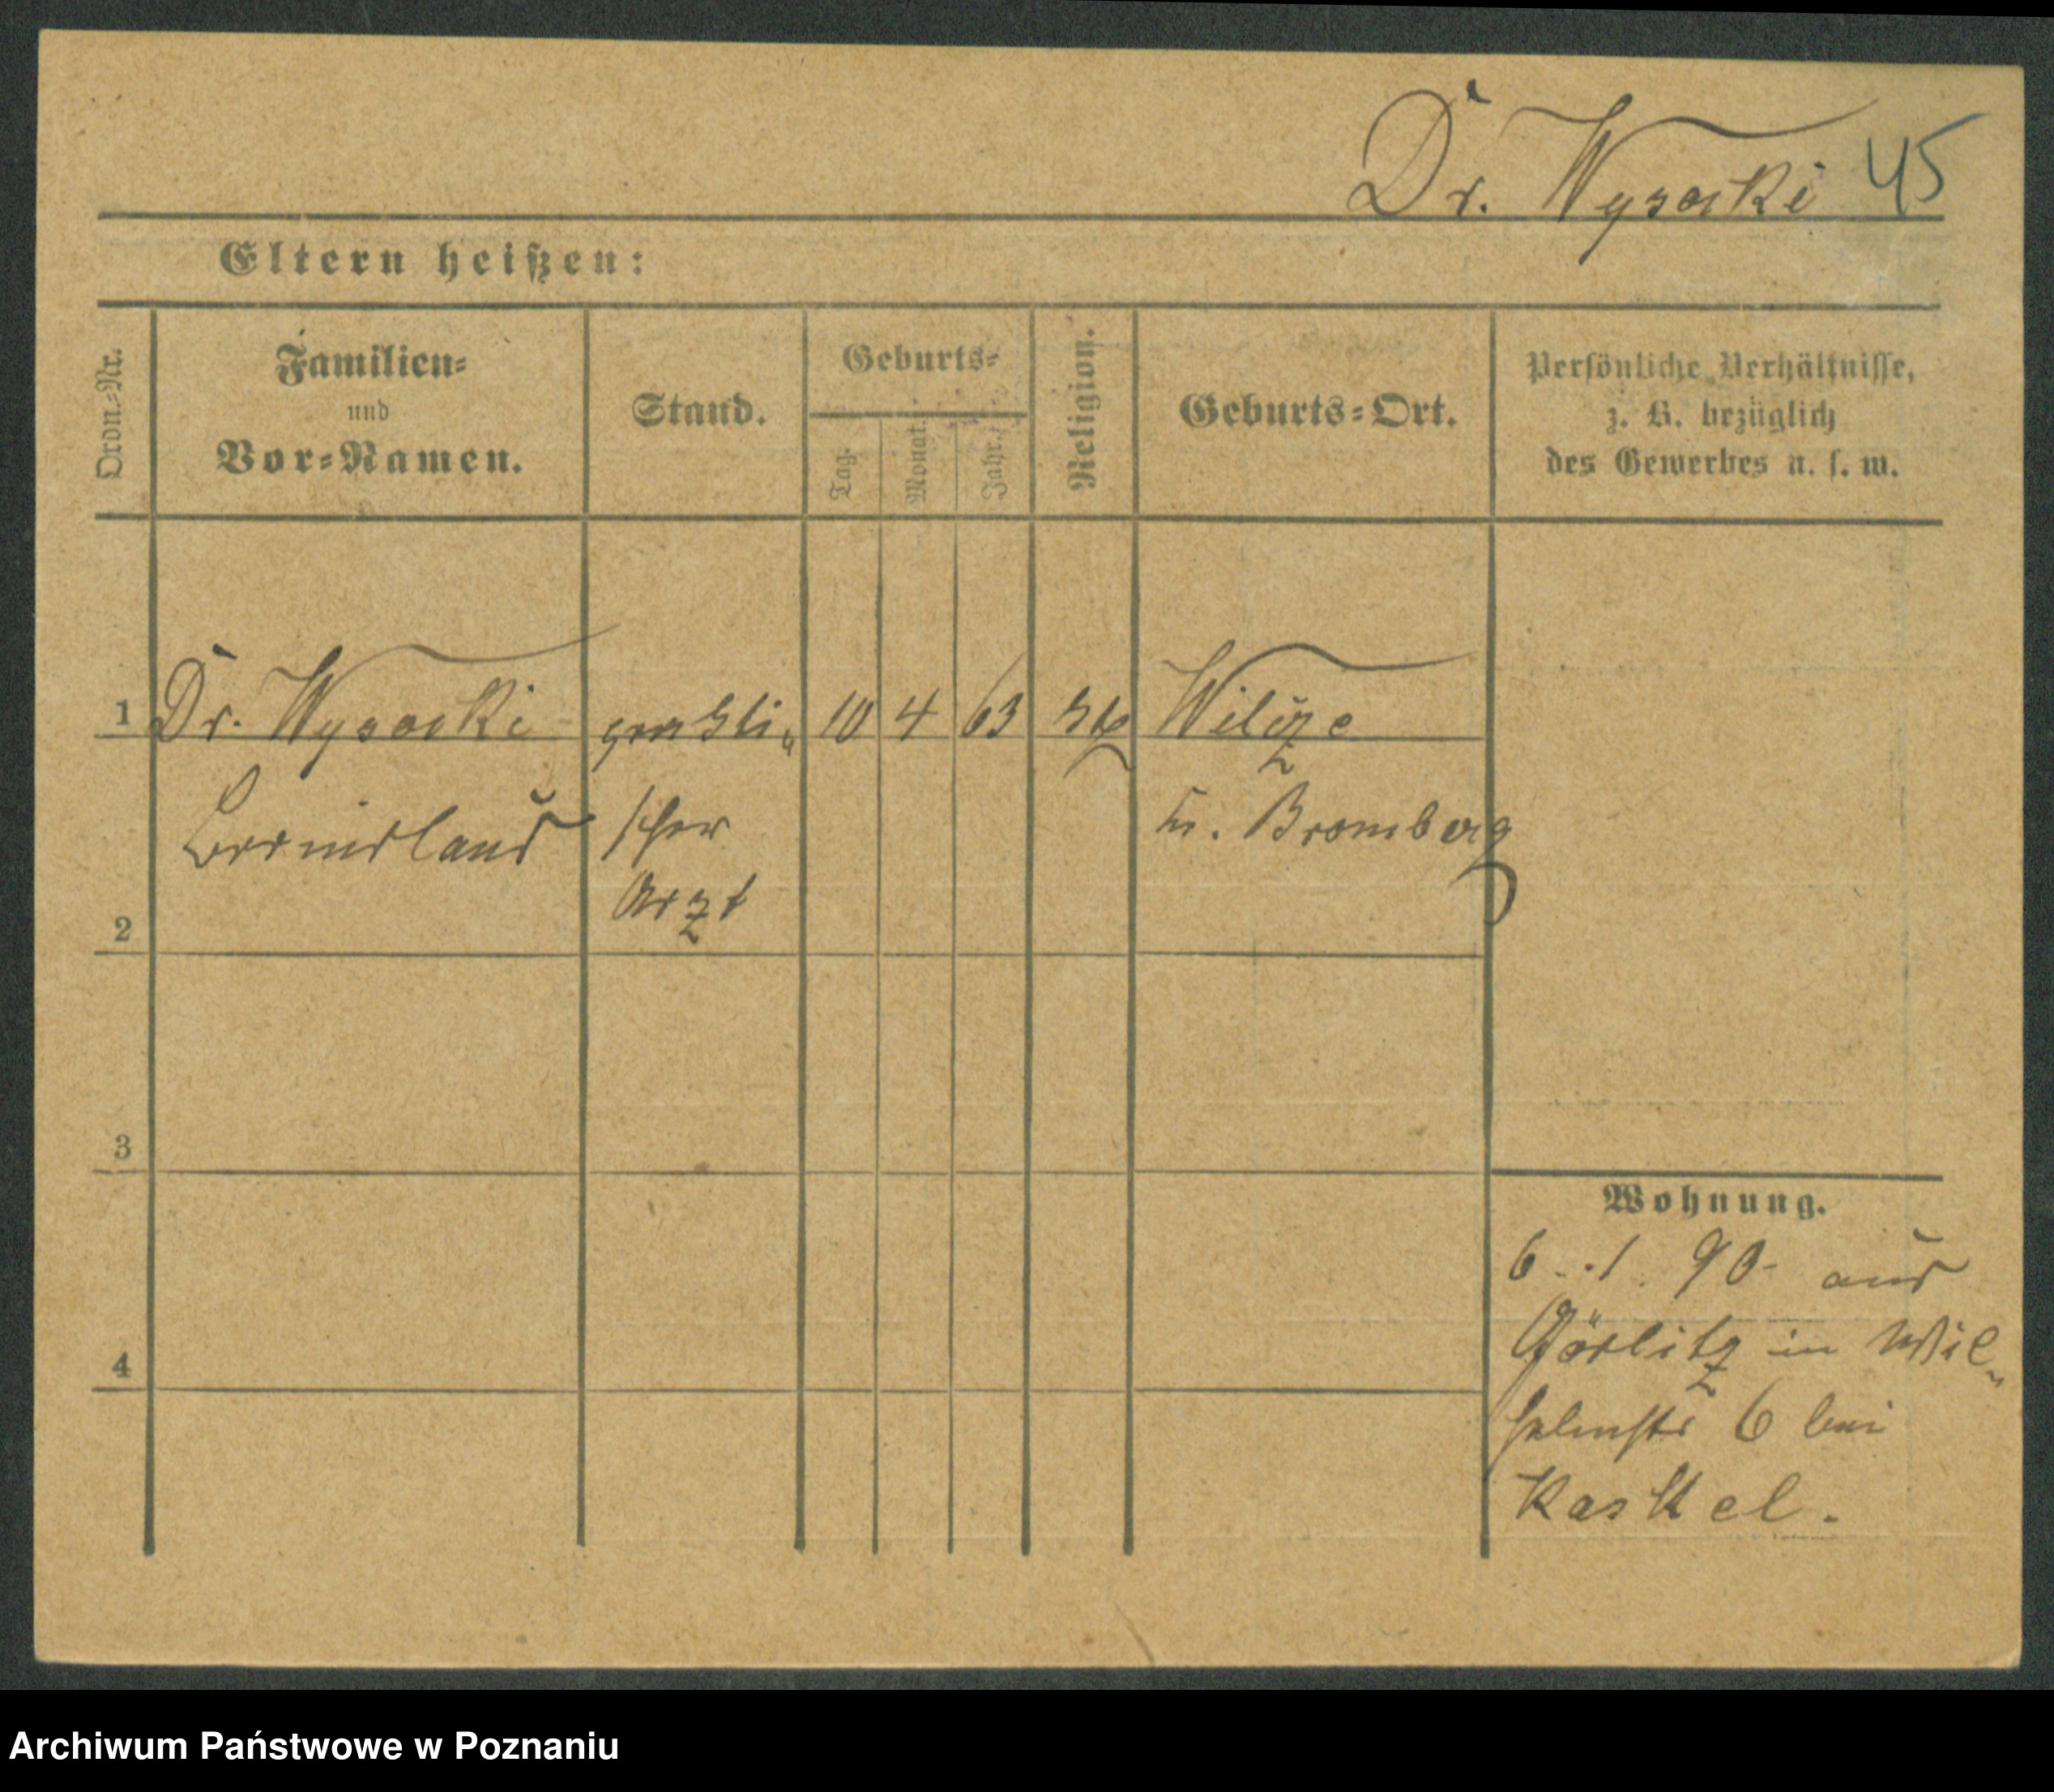 Dr. Wysocki 45
Eltern heißen:
Ordn.-Nr.
Familien-
und
Vor-Namen.
Stand.
Geburts-
Tag.
Monat.
Jahr.
Religion.
Geburts-Ort.
Persönliche Verhältnisse,
z. B. bezüglich
des Gewerbes u. s. w.
1 Dr. Wysocki prakti- 10 4 63 Wilcze
scher
Kr. Bromberg
Arzt
2
3
4
Wohnung.
6. 1. 90 aus
Görlitz in Wil-
helmstr 6 bei
Kaskel.
Archiwum Państwowe w Poznaniu